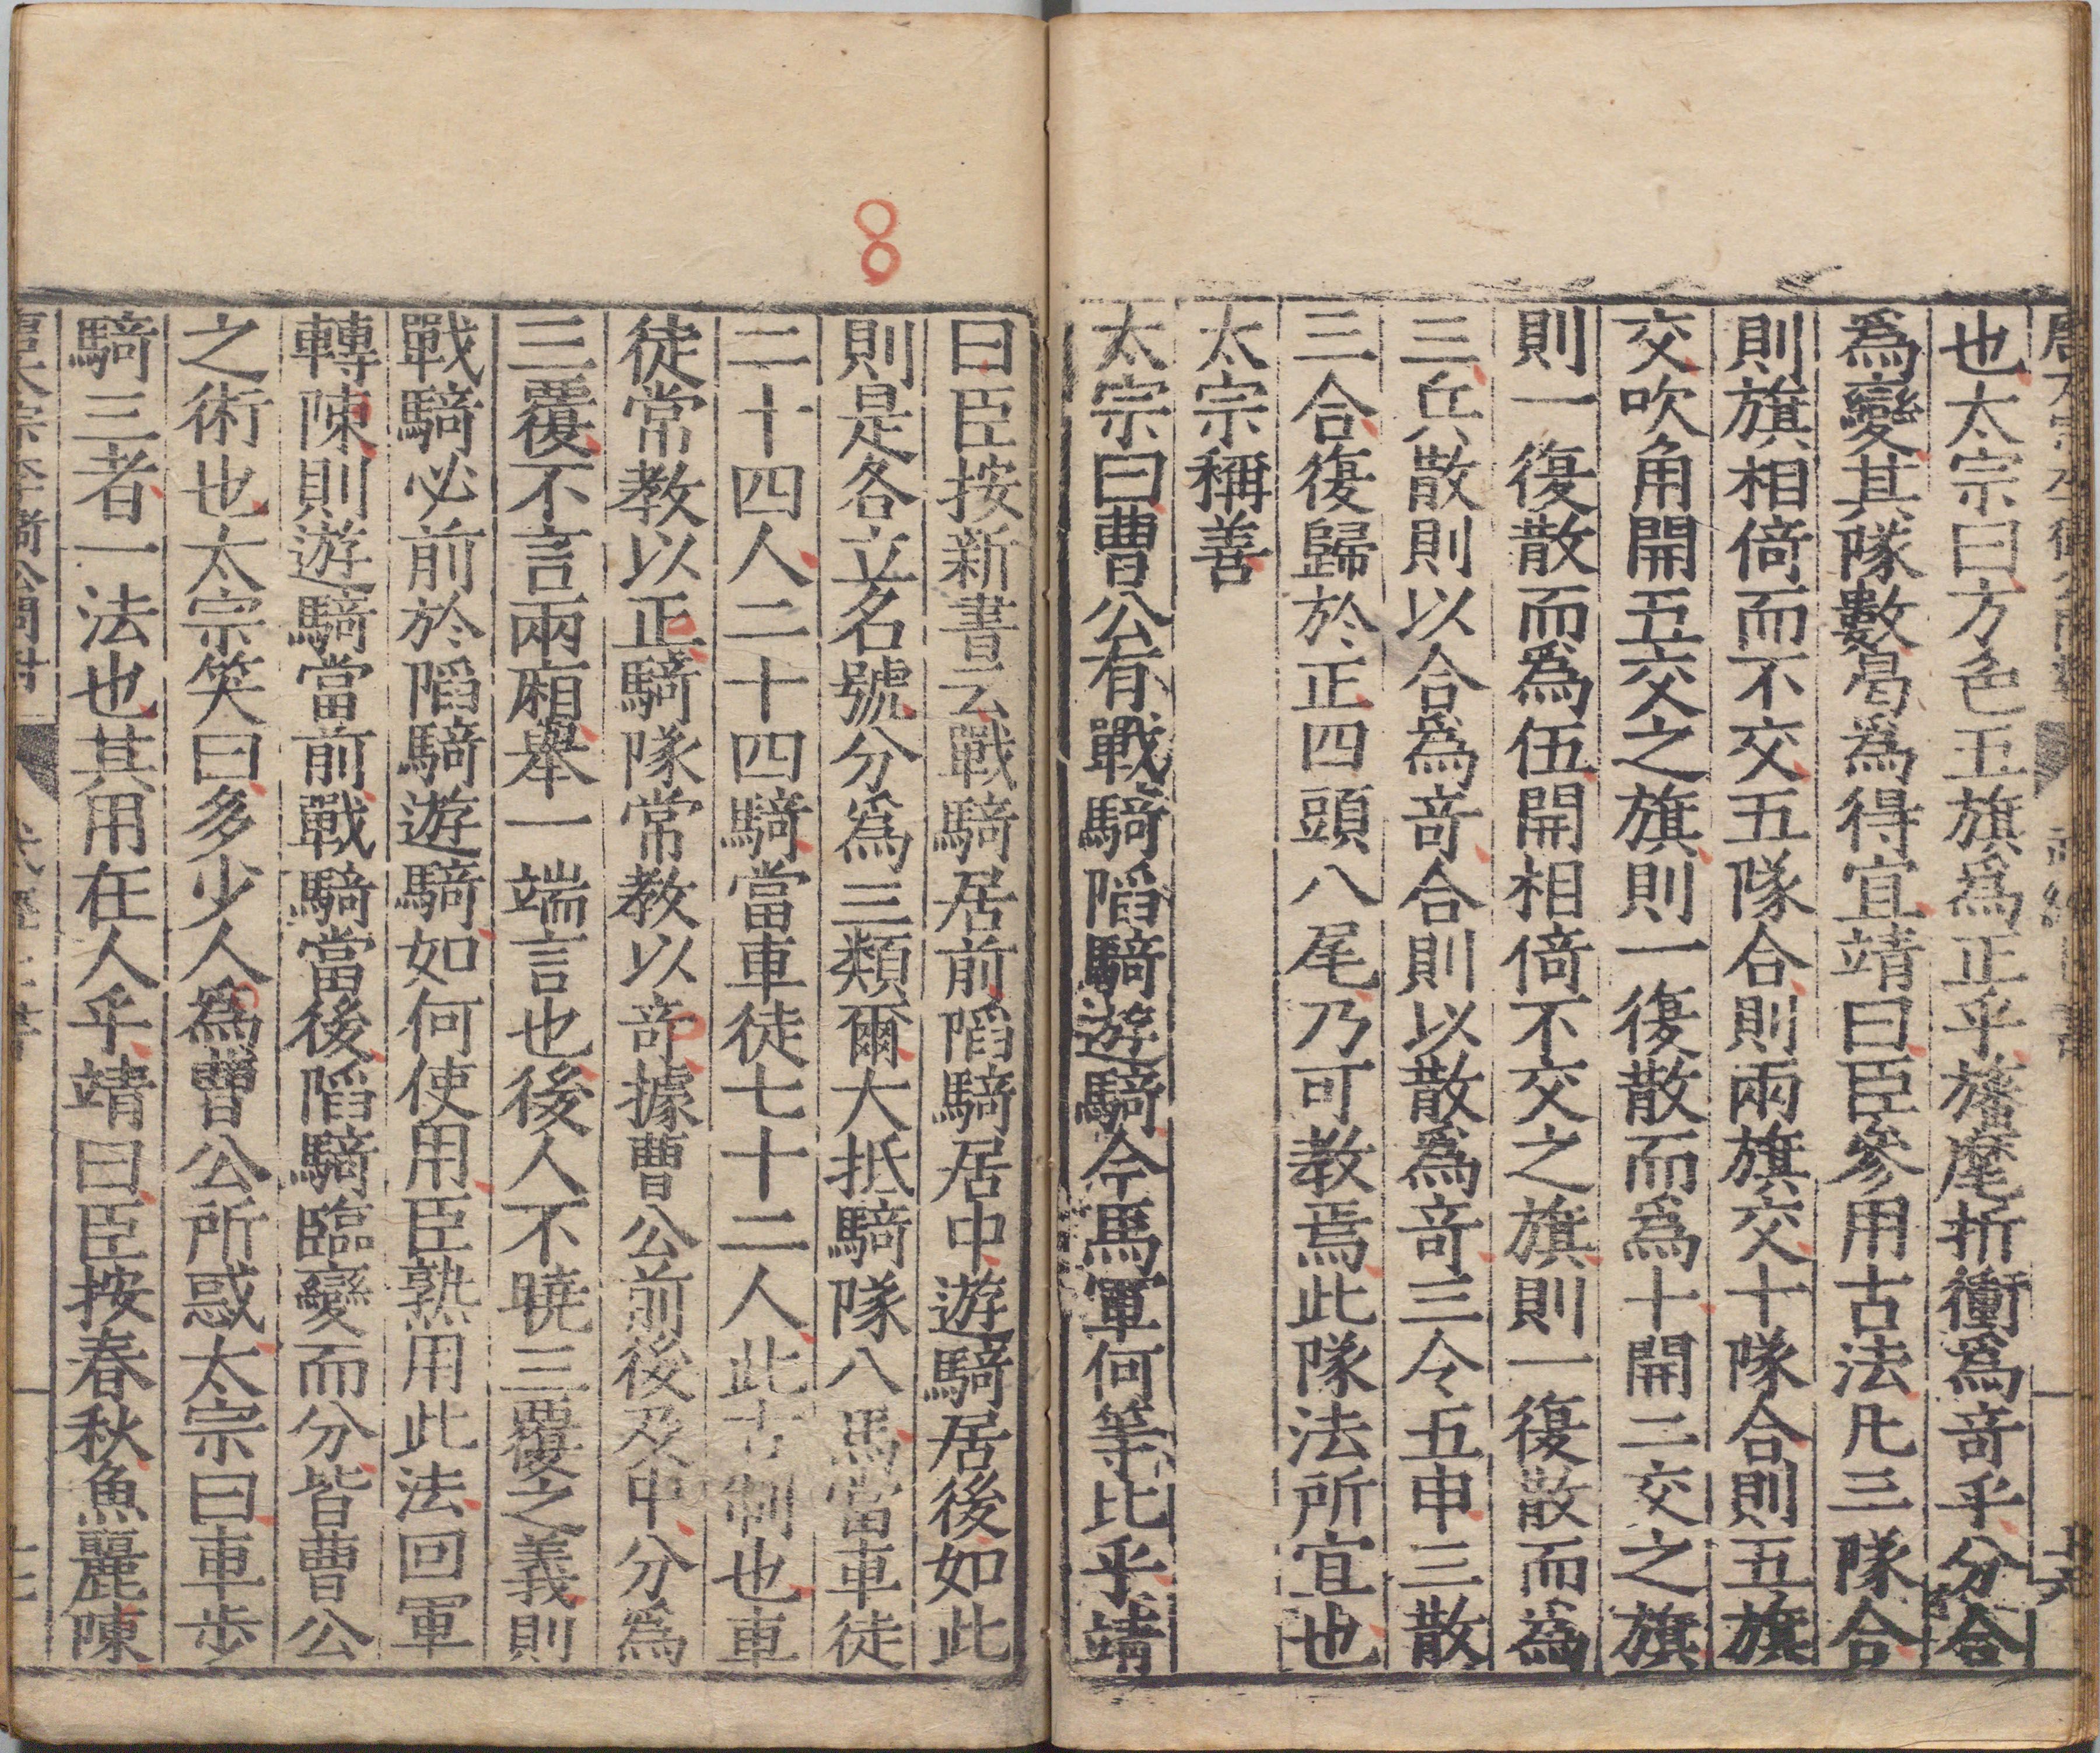 也太宗曰方色五旗爲正乎旛麾折衝爲竒乎分合
爲變其隊數曷爲得宜靖曰臣參用古法凡三隊合
則旗相倚而不交五隊合則兩旗交十隊合則五旗
交吹角開五交之旗則一復散而爲十開二交之旗
則一復散而爲伍開相倚不交之旗則一復散而爲
三兵散則以合爲竒合則以散爲竒三令五申三散
三合復歸於正四頭八尾乃可教焉此隊法所宜也
太宗稱善
太宗曰曹公有戰騎陷騎遊騎今馬軍何等比乎靖
曰臣按新書云戰騎居前陷騎居中遊騎居後如此
則是各立名號分爲三類爾大抵騎隊八馬當車徒
二十四人二十四騎當車徒七十二人此古制也車
徒常教以正騎隊常教以竒據曹公前後及中分爲
三覆不言兩廂舉一端言也後人不曉三覆之義則
戰騎必前於陷騎遊騎如何使用臣熟用此法回軍
轉陳則遊騎當前戰騎當後陷騎臨變而分皆曹公
之術也太宗笑曰多少人爲曹公所惑太宗曰車步
騎三者一法也其用在人乎靖曰臣按春秋魚麗陳